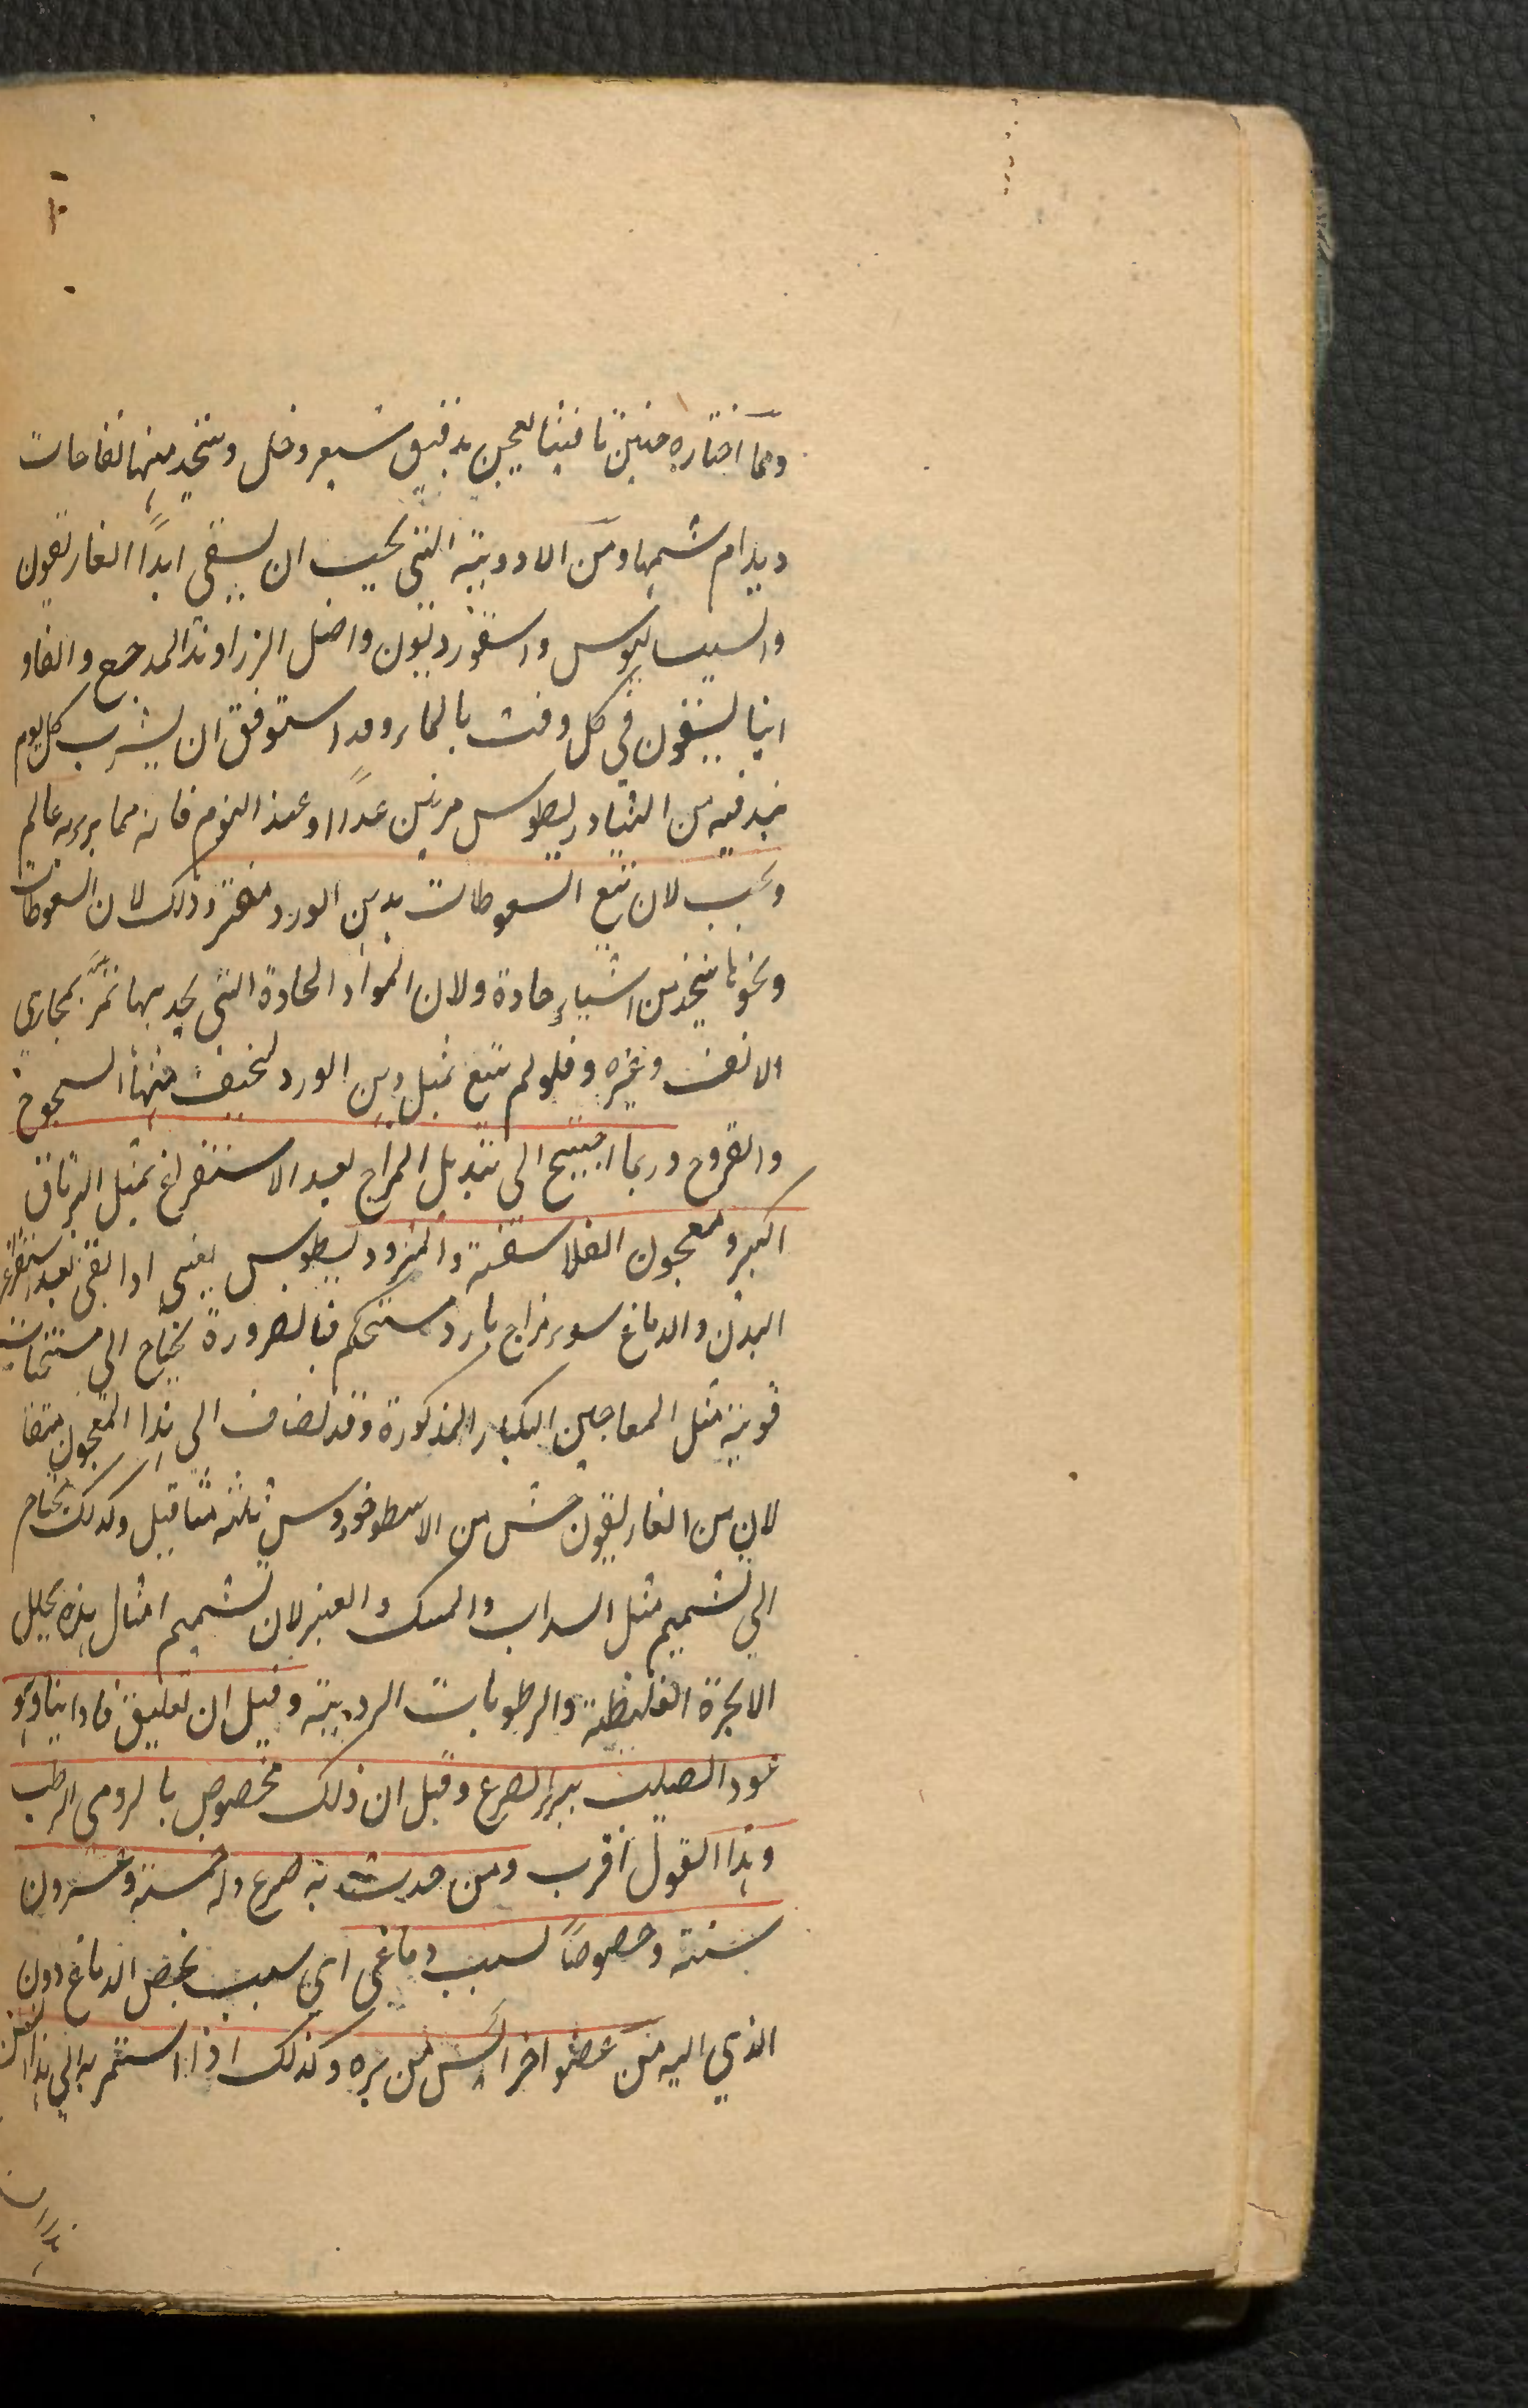 ومما اختاره حنين تافيثا يعجن بدقيق شعير وخل ويتخذ منها نفاحات
ويدام شمها ومن الادوية التى يجب ان يسقى ابدًا الغاريقون
والسيساليوس واسقورديون واصل الزراوند المدحرج والفاو
انيا يسقون في كل وقت بالماء وقد استوفق ان يشرب كل يوم
نبذ فيه من المثروديطوس مرتين غدًا او عند النوم فانه مما يبرء به عالم
ويجب لان تتبع السعوطات بدهن الورد مضر وذلك لان السعوطات
ونحوها يتخذ من اشياء حادة ولان المواد الحادة التى يجد بها تمر بمجارى
الانف وغيره فلو لم تتبع بمثل دهن الورد لخيف منها السحوج
والقروح وربما احتيج الى تبديل المزاج بعد الاستفراغ بمثل الترياق
اكبر ومعجون الفلاسفة والمثروديطوس يعنى اذا بقى بعد استفراغ
البدن والدماغ سوء مزاج بارد مستحكم فبالضرورة يحتاج الى مسخنات
قوية مثل المعاجين الكبار المذكورة وقد يضاف الى هذا المعجون مثقا
لان من الغاريقون خمس من الاسطوخودوس ثلثة مثاقيل وكذلك يحتاج
الى تشميم مثل السداب والمسك والعنبر لان تشميم امثال هذه يحلل
الابخرة الغليظة والرطوبات الردية وقيل ان تعليق فاوانيا وهو
عود الصليب يبرء الصرع وقيل ان ذلك مخصوص بالرومى الرطب
وهذا القول اقرب ومن حدث به صرع وله خمسة وعشرون
سنة وخصوصًا لسبب دماغى اى سبب يخص الدماغ دون
الذي اليه من عضو اخر ايس من برءه وكذلك اذا استمر به الى هذا السن